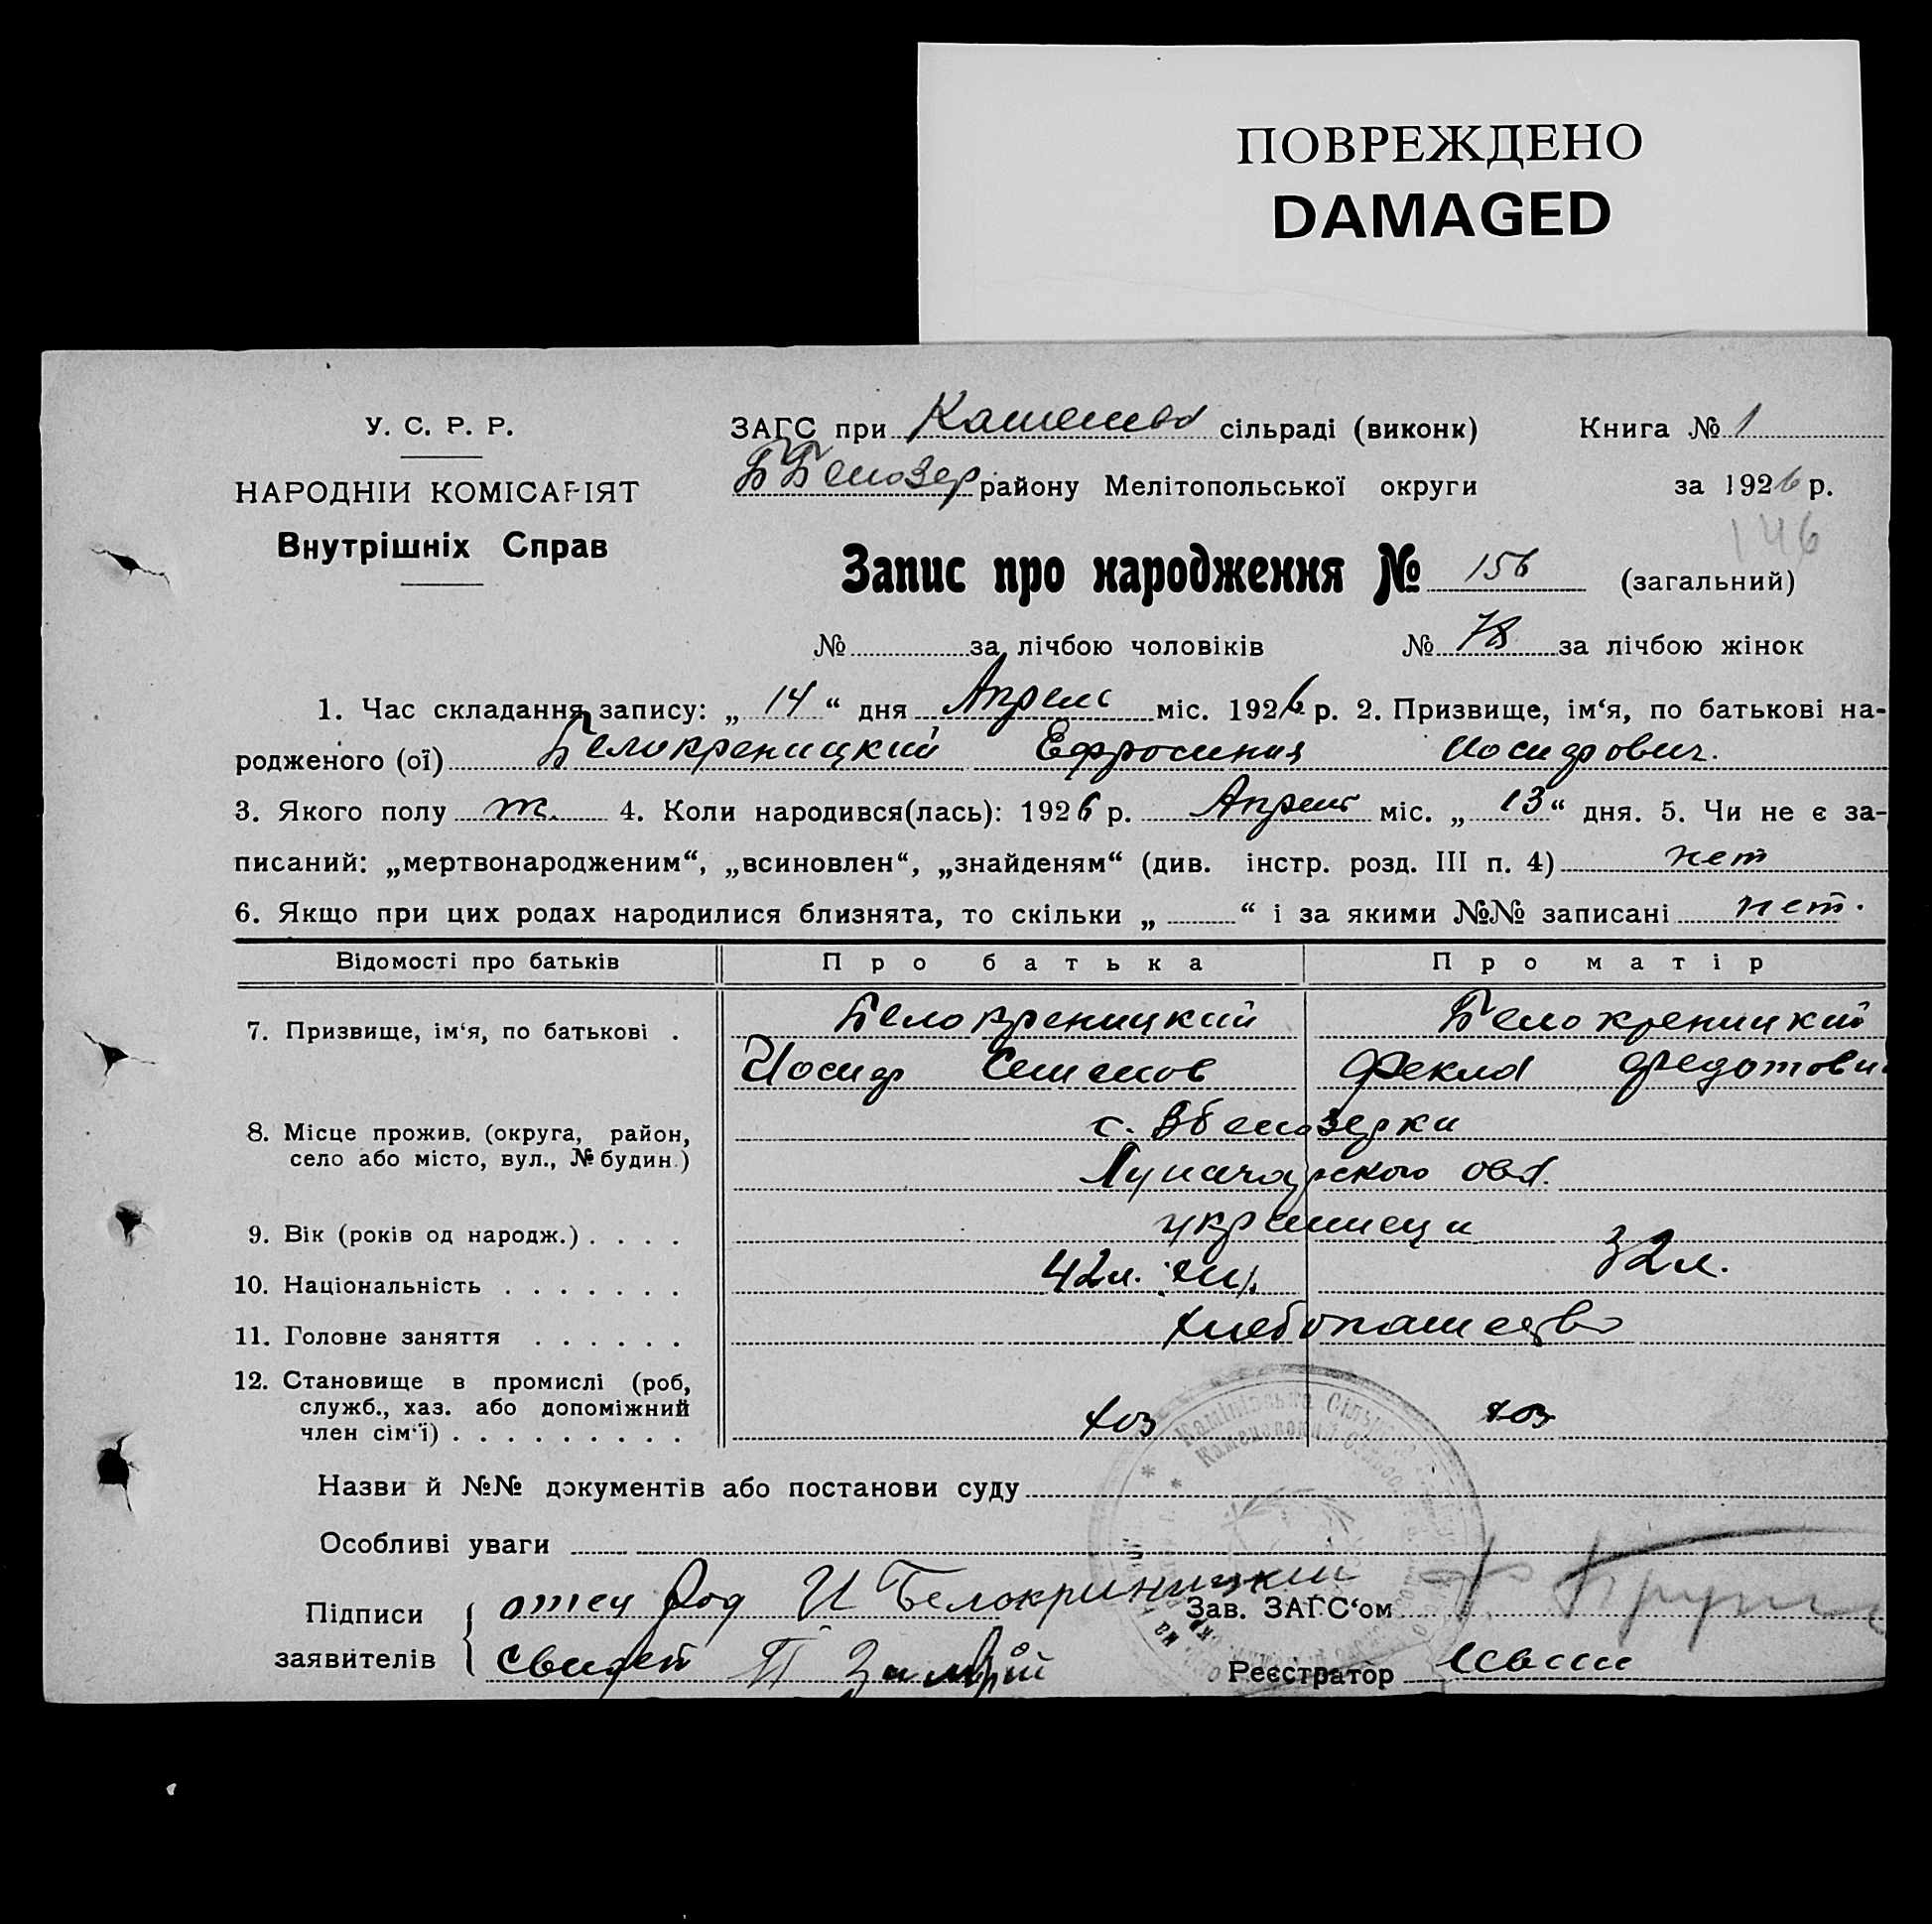 ПОВРЕЖДЕНО
DAMAGED
У. С. Р. Р.
НАРОДНІЙ КОМІСАРІЯТ
Внутрішніх Справ
ЗАГС при сільраді (виконк) Книга № 1
Б Белозер району Мелітопольської округи за 1926 р.
146
Запис про народження № 156 (загальний)
№ за лічбою чоловіків № 78 за лічбою жінок
1. Час складання запису: „ 14 “ дня Апрель міс. 1926 р. 2. Призвище, ім‘я, по батькові на-
родженого (ої) Белокреницкий Ефросиния Иосифович.
3. Якого полу ж. 4. Коли народився(лась): 1926 р. Апрель міс. „ 13 “ дня. 5. Чи не є за-
писаний: „мертвонародженим“, „всиновлен“, „знайденям“ (див. інстр. розд. III п. 4) нет
6. Якщо при цих родах народилися близнята, то скільки „ “ і за якими №№ записані нет.
Відомості про батьків Про батька Про матір
7. Призвище, ім‘я, по батькові . Белокреницкий Белокреницкий
Иосиф Семенов Фекла Федотови
8. Місце прожив. (округа, район,
село або місто, вул., № будин.)
с. Вбелозерки
9. Вік (років од народж.) . . . .
10. Національність . . . . . . . 42л. 32л.
11. Головне заняття . . . . . . хлебопашество
12. Становище в промислі (роб,
служб., хаз. або допоміжний
член сім‘ї) . . . . . . . . . хоз хоз
Назви й №№ документів або постанови суду
Особливі уваги
Підписи отец И Белокриницкий Зав. ЗАГС‘ом
заявителів свидет П Реєстратор